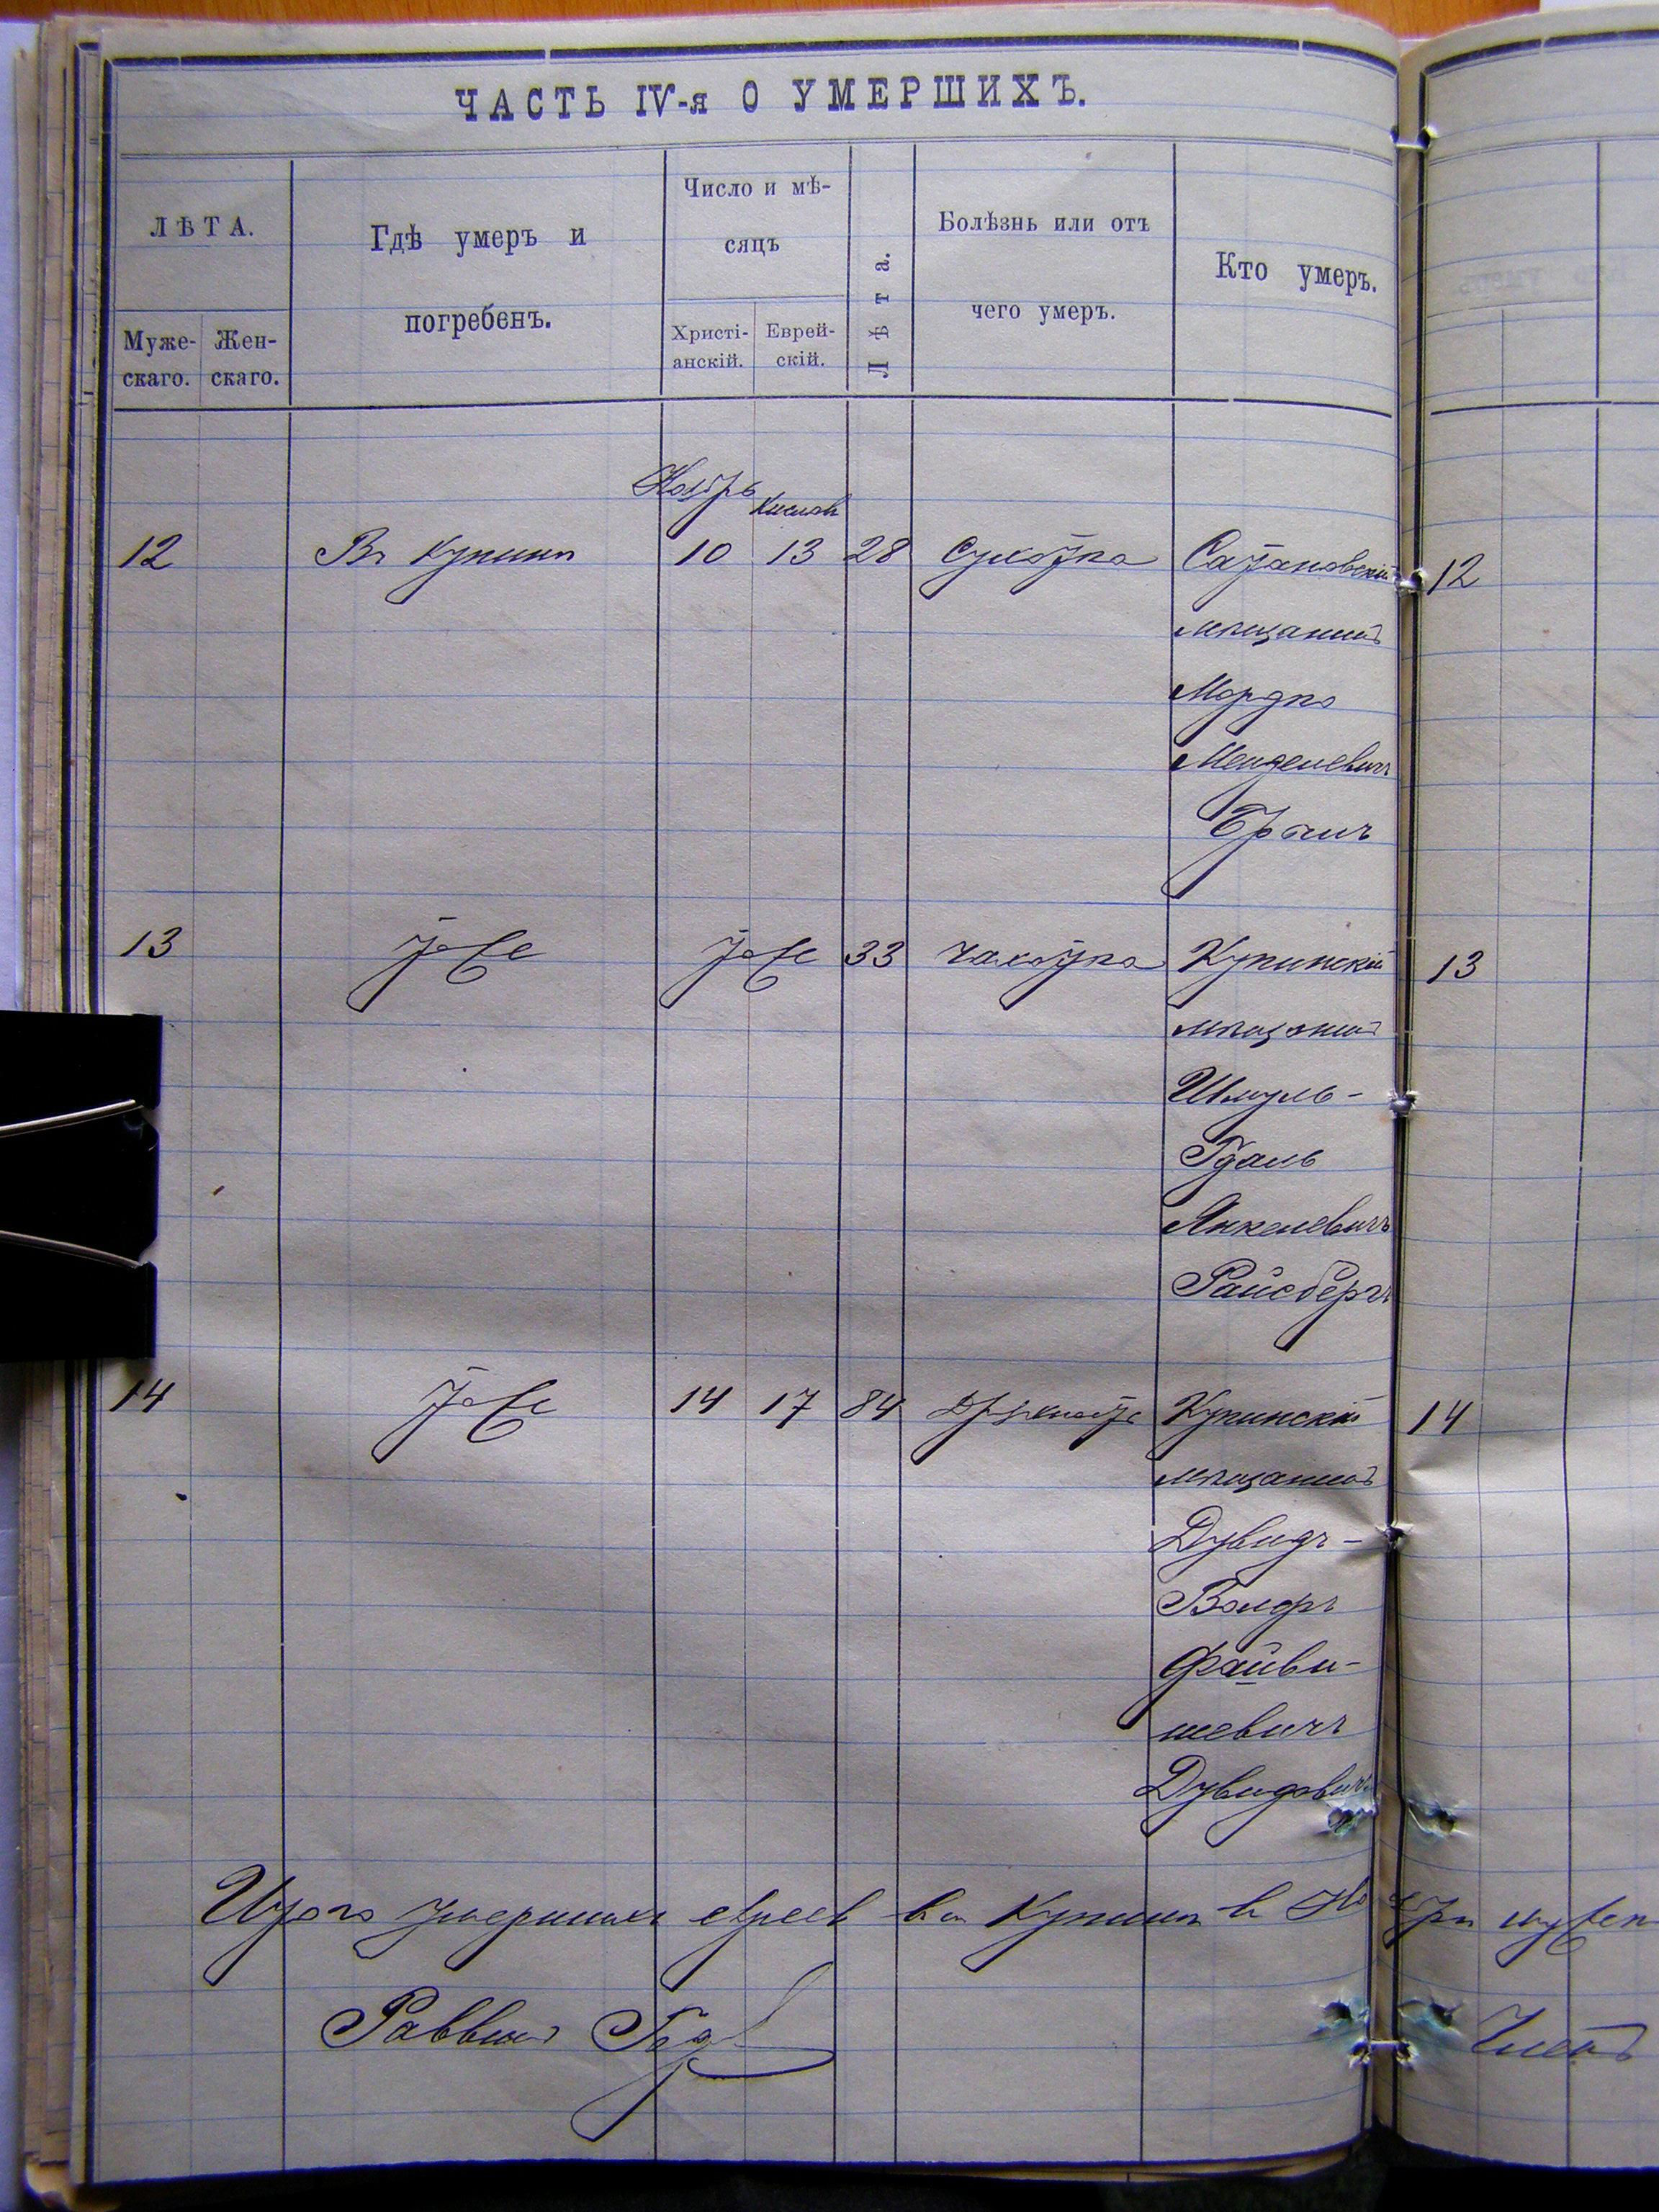 ЧАСТЬ IV-я О УМЕРШИХЪ.
ЛѢТА.
Муже-
скаго.
Жен-
скаго.
Гдѣ умеръ и
погребенъ.
Число и мѣ-
сяцъ
Христі-
анскій.
Еврей-
скій.
Лѣта.
Болѣзнь или отъ
чего умеръ.
Кто умеръ.
Ноябрь Кислевъ
12 Въ Купинѣ 10 13 28 Сухотка Сатановскій 12
мѣщанинъ
Мордко
Менделевичъ
13 тоже тоже 33 чахотка Купинскій 13
мѣщанинъ
Шмуль-
Гдаль
Янкелевичъ
Райсбергъ
14 тоже 14 17 84 Дряхлость Купинскій 14
мѣщанинъ
Дувидъ-
Волфъ
Файви-
шевичъ
Дувидовичъ
Итого умершихъ евреевъ въ м Купинѣ въ Ноябрѣ мужеск
Раввинъ
Членъ